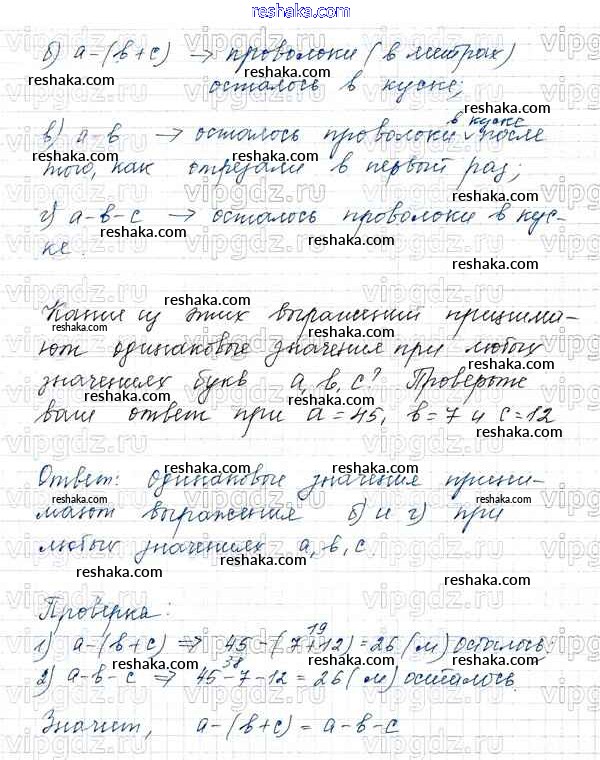 reshaka.com
б) а-(в+с) → проволоки (в метрах)
осталось в куске;
в) а-в → осталось проволоки в куске после
того, как отрезали в первый раз;
г) а-в-с → осталось проволоки в кус-
ке.
Какие из этих выражений принима-
ют одинаковые значения при любых
значениях букв а, в, с? Проверьте
ваш ответ при а=45, в=7 и с=12
Ответ: одинаковые значения прини-
мают выражения б) и г) при
любых значениях а, в, с.
Проверка:
19
1) а-(в+с) ⇒ 45-(7+12)=26 (м) осталось;
38
2) а-в-с ⇒ 45-7-12=26 (м) осталось.
Значит, а-(в+с)=а-в-с
vipgdz.ru